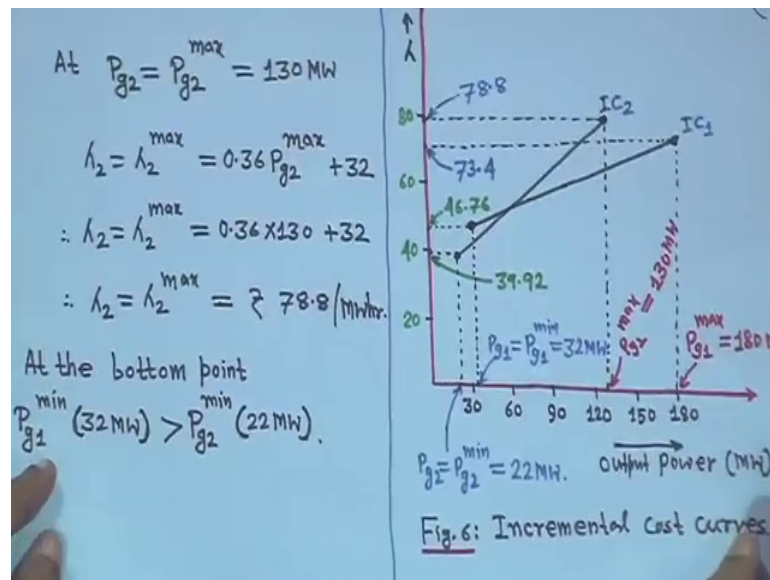 At Pg2 = Pg2^max = 130 MW
λ2 = λ2^max = 0.36 Pg2^max + 32
∴ λ2 = λ2^max = 0.36 × 130 + 32
∴ λ2 = λ2^max = ₹ 78.8/MWhr.
At the bottom point
Pg1^min (32 MW) > Pg2^min (22 MW).
λ
78.8
IC2
IC1
80
73.4
60
46.76
40
39.92
20
Pg1 = Pg1^min = 32 MW
Pg2^max = 130 MW
Pg1^max = 180 M
30 60 90 120 150 180
Pg2 = Pg2^min = 22 MW.
Output Power (MW)
Fig. 6: Incremental Cost Curves